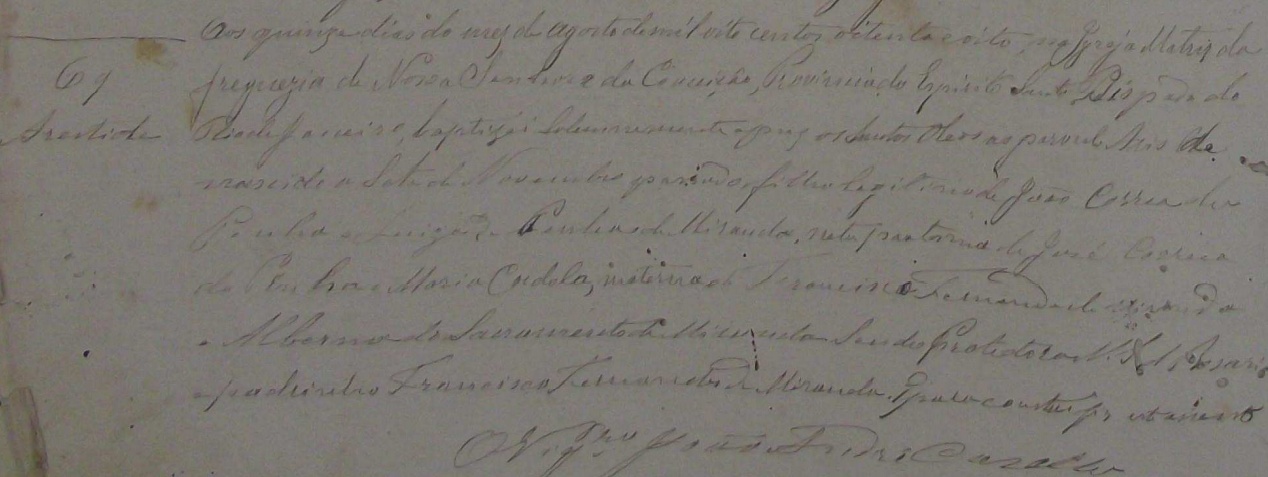 Aos quinze dias do mez de Agosto de mil oito centos oitenta e oito, na Igreja Matriz da
69
freguezia de Nossa Senhora da Conceição, Provincia do Espirito Santo Bispado do
Rio de Janeiro, baptizei solennemente e puz os Santos Oleos ao parvulo
nascido a Sete de Novembro passado, filho legitimo de João Correa da
Penha e Luiza da Penha de Miranda, neto paterno de José Correa
da Penha e Maria materno de Francisco Fernandes de Miranda
e do Sacramento de Miranda Sendo Protectora N. S. do Rosario
e padrinho Francisco Fernandes de Miranda. E para constar fiz este assento
O Vigro João